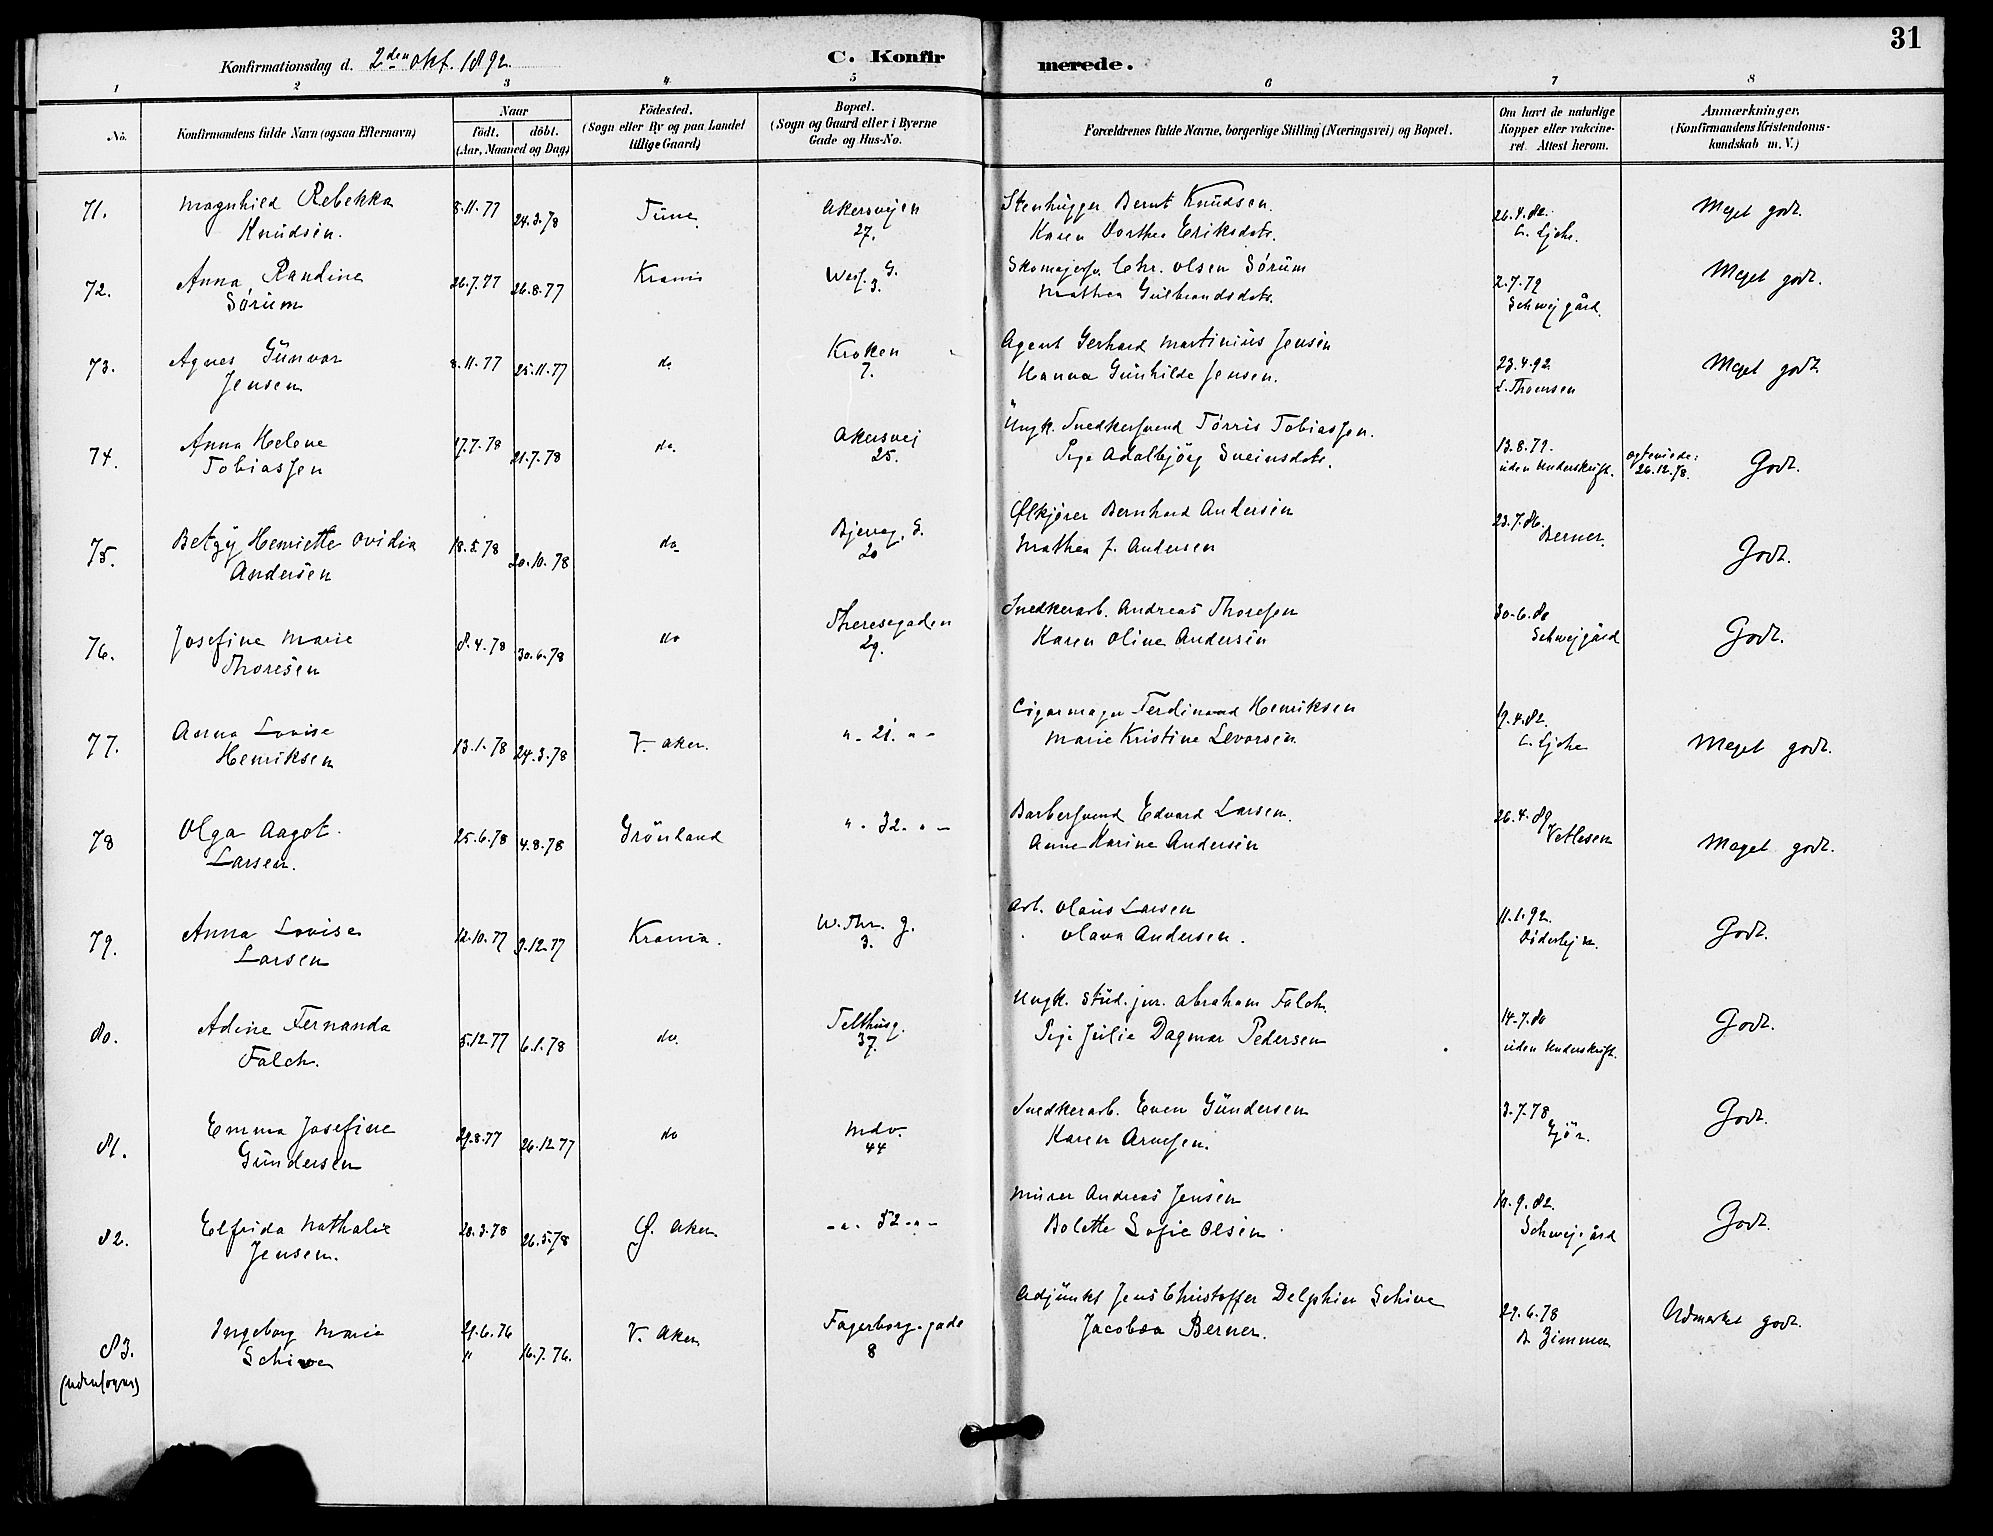 31
Konfirmationsdag d. 2den okt. 1892.
C. Konfirmerede.
1 2 3 4 5 6 7 8
No. Konfirmandens fulde Navn (ogsaa Efternavn)
Naar
födt. döbt.
(Aar, Maaned og Dag)
Födested.
(Sogn eller By og paa Landet
tillige Gaard)
Bopæl.
(Sogn og Gaard eller i Byerne
Gade og Hus-No.
Forældrenes fulde Navne, borgerlige Stilling (Næringsvei) og Bopæl.
Om havt de naturlige
Kopper eller vakcine-
ret. Attest herom.
Anmærkninger,
(Konfirmandens Kristendoms-
kundskab m. V.)
71. Magnhild Rebekka 8.11.77 24.3.78 Tune Akersvejen Stenhugger Bernt Knudsen. 26.4.82. Meget godt.
Knudsen. 27. Karen Dorthea Eriksdatr. L. Ljche.
72. Anna Randine 26.7.77 26.8.77 Krania Wesf. G. Skomagersv. Chr. Olsen Sørum 2.7.79 Meget godt.
Sørum 3. Mathea Gulbrandsdatr. Schwejgård.
73. Agnes Gunvor 8.11.77 25.11.77 do Kroken Agent Gerhard Martinius Jensen 23.4.92. Meget godt.
Jensen 7. Hanna Gunhilde Jensen. L. Thomsen
74. Anna Helene 17.7.78 21.7.78 do. Akersvej Ungk. Snedkersvend Tørris Tobiassen. 13.8.79. Godt.
Tobiassen 25. Pige Adalbjörg Sveinsdatr. uden Underskrift. 26.12.78.
75. Betzy Henriette Ovidia 18.5.78 20.10.78 do Bjerreg. G. Ølkjører Bernhard Andersen 23.7.86. Godt.
Andersen 20 Mathea J. Andersen Berner.
76. Josefine Marie 8.4.78 30.6.78 do Theresegaden Snedkerarb. Andreas Thoresen 30.6.80 Godt.
Thoresen 29. Karen Oline Andersen Schwejgård
77. Anna Lovise 13.1.78 24.3.78 V. Aker. " - 21. " - Cigarmager Ferdinand Henriksen 19.4.82. Meget godt.
Henriksen Marie Kristine Levorsen L. Ljche
78 Olga Aagot 25.6.78 4.8.78 Grönland " - 32. " - Barbersvend Edvard Larsen. 26.4.89 Meget godt.
Larsen. Anne Karine Andersen Vetlesen
79. Anna Lovise 12.10.77 9.12.77 Krania. W. Thr. G. Arb. Olaus Larsen 11.1.92. Godt.
Larsen 3. Olava Andersen. Döderlejn.
80. Adine Fernanda 5.12.77 6.1.78 do. Telthusg. Ungk. stud. jur. Abraham Falch 14.7.80 Godt.
Falch. 37. Pige Julie Dagmar Pedersen uden Underskrift.
81. Emma Josefine 29.8.77 26.12.77 do Mdv. Snedkerarb. Even Gundersen 3.7.78 Godt.
Gundersen 44 Karen Arnesen. Gjör.
82. Elfrida Nathalie 28.3.78 26.5.78 Ø. Aker - " - 52 - " - Murer Andreas Jensen 10.9.82. Godt.
Jensen. Bolette Sofie Olsen Schwejgård
83. Ingeborg Maria 29.6.76 16.7.76. V. Aker Fagerborg-gade Adjunkt Jens Christoffer Delphin Schive 29.6.78 Udmærket godt.
(udensogns) Schive " 8 Jacobæa Berner. B. Zimmer